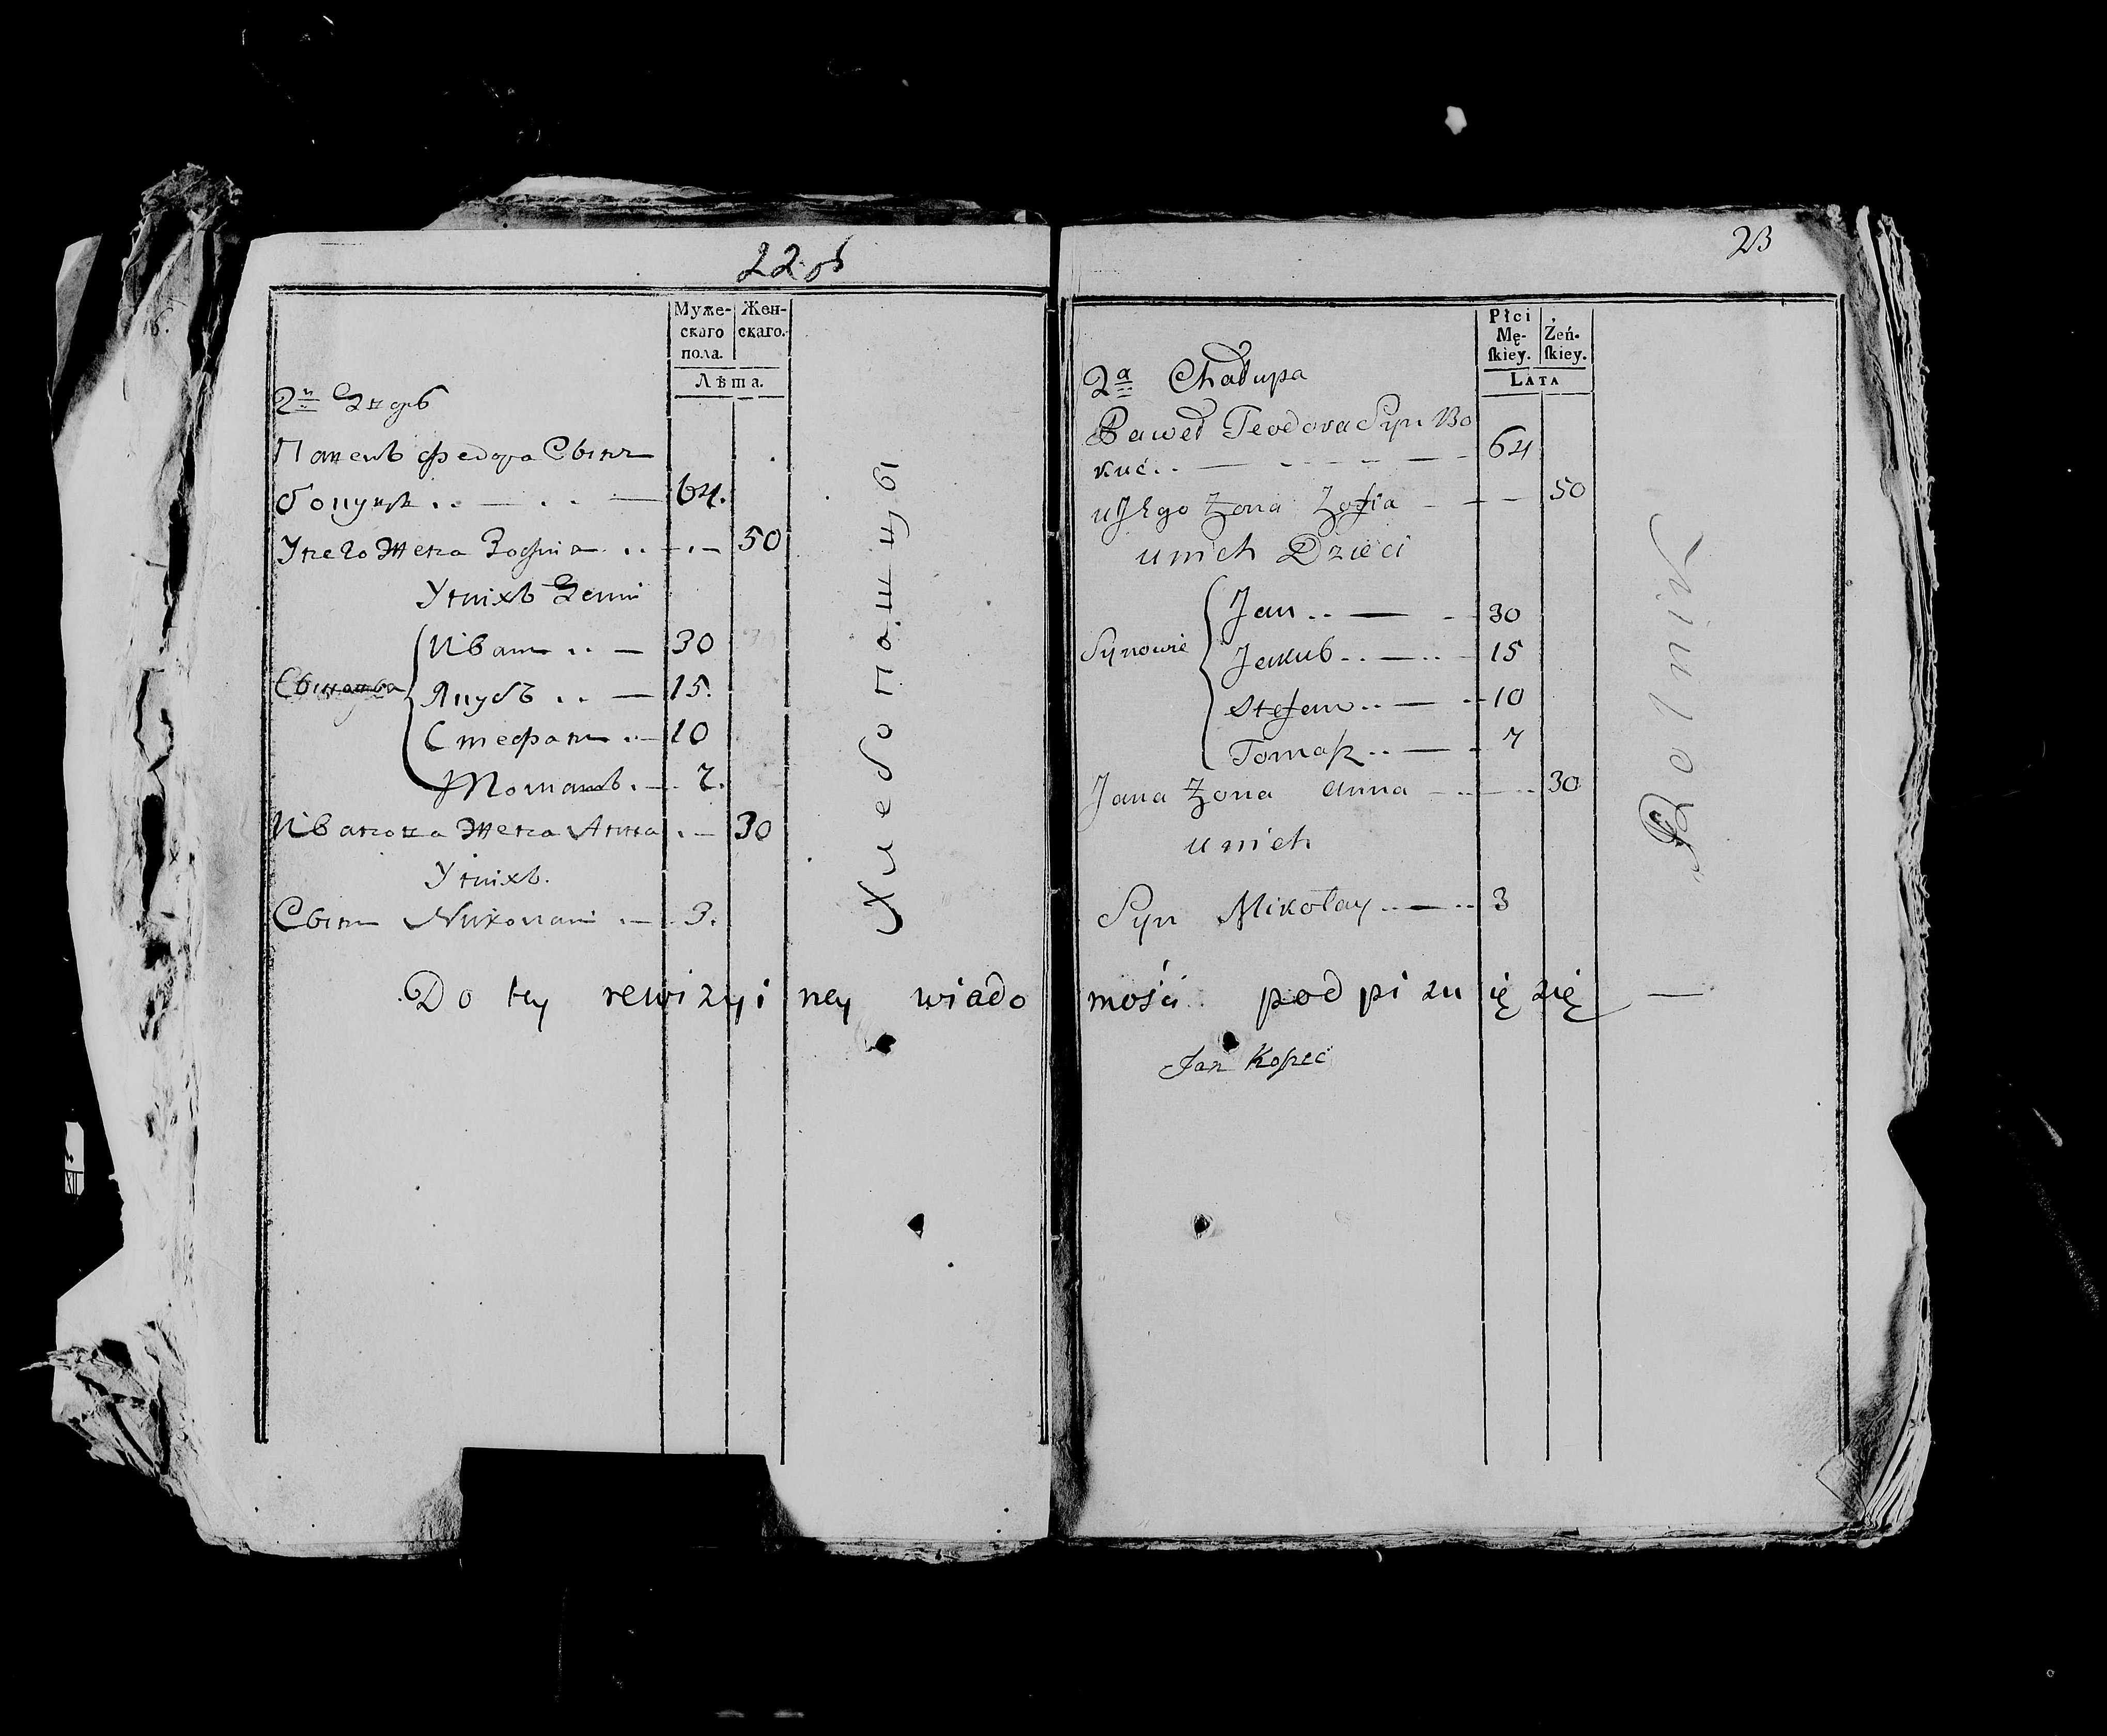 22 об
Муже-
скаго
пола.
Жен-
скаго.
Лѣта.
2й
Павелъ Федора Сынъ
Бокуцъ .. — .. — 64.
У него Жена Зофиа .. — . — 50
У нихъ
Иванъ .. — 30
Якубъ .. — 15.
Стефанъ .. — 10
Томашъ . — 7.
Иванова Жена Анна . — 30
У нихъ.
Сынъ Николай . — 3.
Хлебопашцы
23
Płci
Mę-
ſkiey.
Żeń-
ſkiey.
LATA
2a Chałupa
Paweł Teodora Syn Bo
kuć .. — . . — — 64
u Jego Żona Zofia — — — 50
u nich Dzieci
Synowie
Jan .. — . 30
Jakub .. — .. 15
Stefan .. — . 10
Tomaſz .. — . 7
Jana Żona Anna — .. — .. 30
u nich
Syn Mikołay .. — .. 3
Rolnik
Do tey rewizyiney wiadomości podpizuię zię —
Jan Kopeć